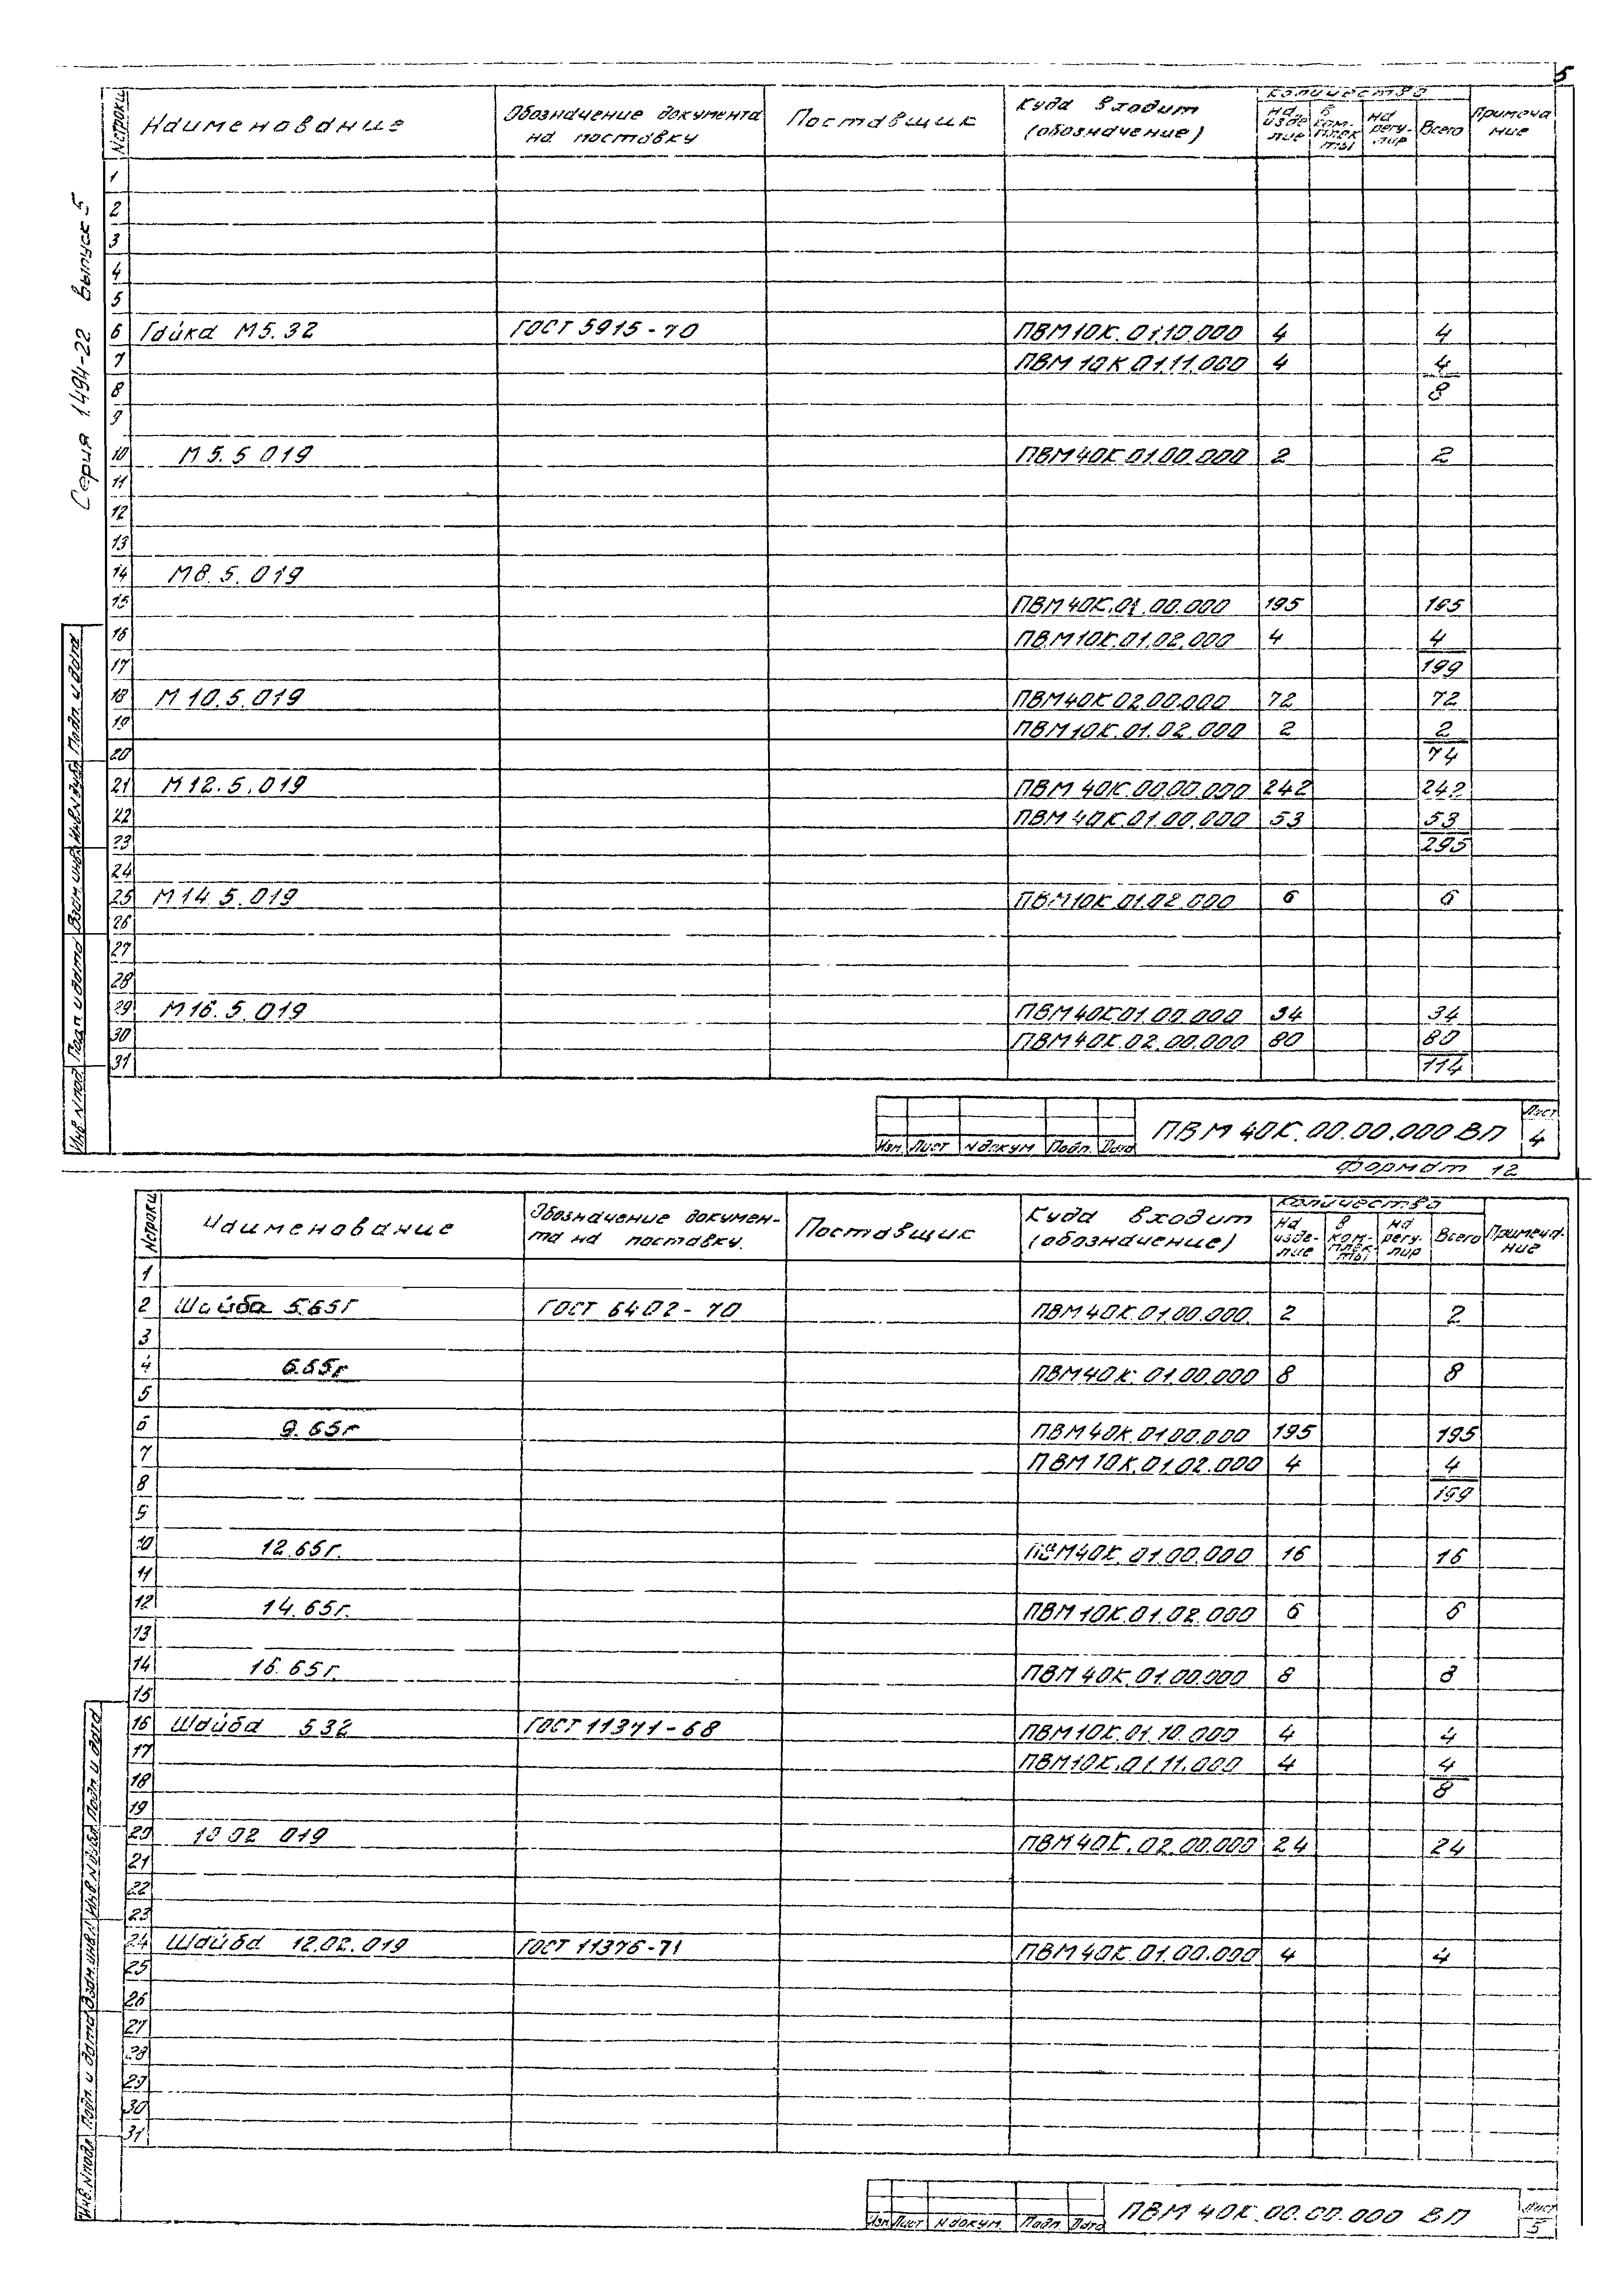 5
Серия 1.494-22 Выпуск 5
N строки Наименование Обозначение документа на поставку Поставщик Куда входит (обозначение) Количество на изделие в комплекты на регулир Всего Примечание
1
2
3
4
5
6 Гайка М5.32 ГОСТ 5915-70 ПВМ10К.01.10.000 4 4
7 ПВМ 10К 01.11.000 4 4
8 8
9
10 М5.5 019 ПВМ40К.01.00.000 2 2
11
12
13
14 М8.5.019
15 ПВМ40К.01.00.000 195 195
16 ПВМ10К.01.02.000 4 4
17 199
18 М10.5.019 ПВМ40К 02.00.000 72 72
19 ПВМ10К.01.02.000 2 2
20 74
21 М12.5.019 ПВМ 40К.00.00.000 242 242
22 ПВМ 40К.01.00.000 53 53
23 295
24
25 М14.5.019 ПВМ10К.01.02.000 6 6
26
27
28
29 М16.5.019 ПВМ40К01.00.000 34 34
30 ПВМ40К.02.00.000 80 80
31 114
Инв. N подл. Подп и дата Взам инв. Инв.N дубл. Подп. и дата
Изм. Лист N докум Подп. Дата ПВМ 40К.00.00.000 ВП Лист 4
Формат 12
N строки Наименование Обозначение документа на поставку. Поставщик Куда входит (обозначение) Количество на изделие в комплекты на регулир Всего Примечание
1
2 Шайба 5.65Г ГОСТ 6402-70 ПВМ40К.01.00.000. 2 2
3
4 6.65г ПВМ40К.01.00.000 8 8
5
6 8.65г ПВМ40К.01.00.000 195 195
7 ПВМ 10К.01.02.000 4 4
8 199
9
10 12.65г. ПВМ40К.01.00.000 16 16
11
12 14.65г. ПВМ10К.01.02.000 6 6
13
14 16.65г. ПВМ 40К.01.00.000 8 8
15
16 Шайба 5 32 ГОСТ 11371-68 ПВМ10К.01.10.000 4 4
17 ПВМ10К.01.11.000 4 4
18 8
19
20 10 02 019 ПВМ40К.02.00.000 24 24
21
22
23
24 Шайба 12.02.019 ГОСТ 11376-71 ПВМ40К.01.00.000 4 4
25
26
27
28
29
30
31
Инв.N подл Подп. и дата Взам.инв.N Инв.N дубл. Подп. и дата
Изм Лист N докум. Подп. Дата ПВМ 40К.00.00.000 ВП Лист 5